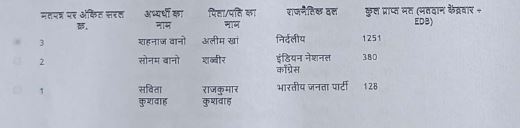 मतपत्र पर अंकित सरल क्र. अभ्यर्थी का नाम पिता/पति का नाम राजनैतिक दल कुल प्राप्त मत (मतदान केंद्रवार + EDB)
3 शहनाज बानो अलीम खां निर्दलीय 1251
2 सोनम बानो शब्बीर इंडियन नेशनल काँग्रेस 380
1 सविता कुशवाह राजकुमार कुशवाह भारतीय जनता पार्टी 128